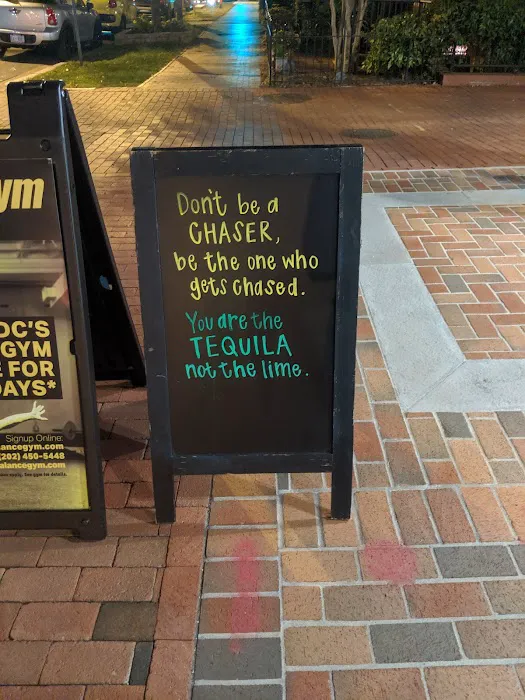 Don't be a
CHASER,
be the one who
gets chased.
You are the
TEQUILA
not the lime.
ym
DC'S
GYM
FOR
DAYS*
Signup Online:
alancegym.com
(202) 450-5448
alancegym.com